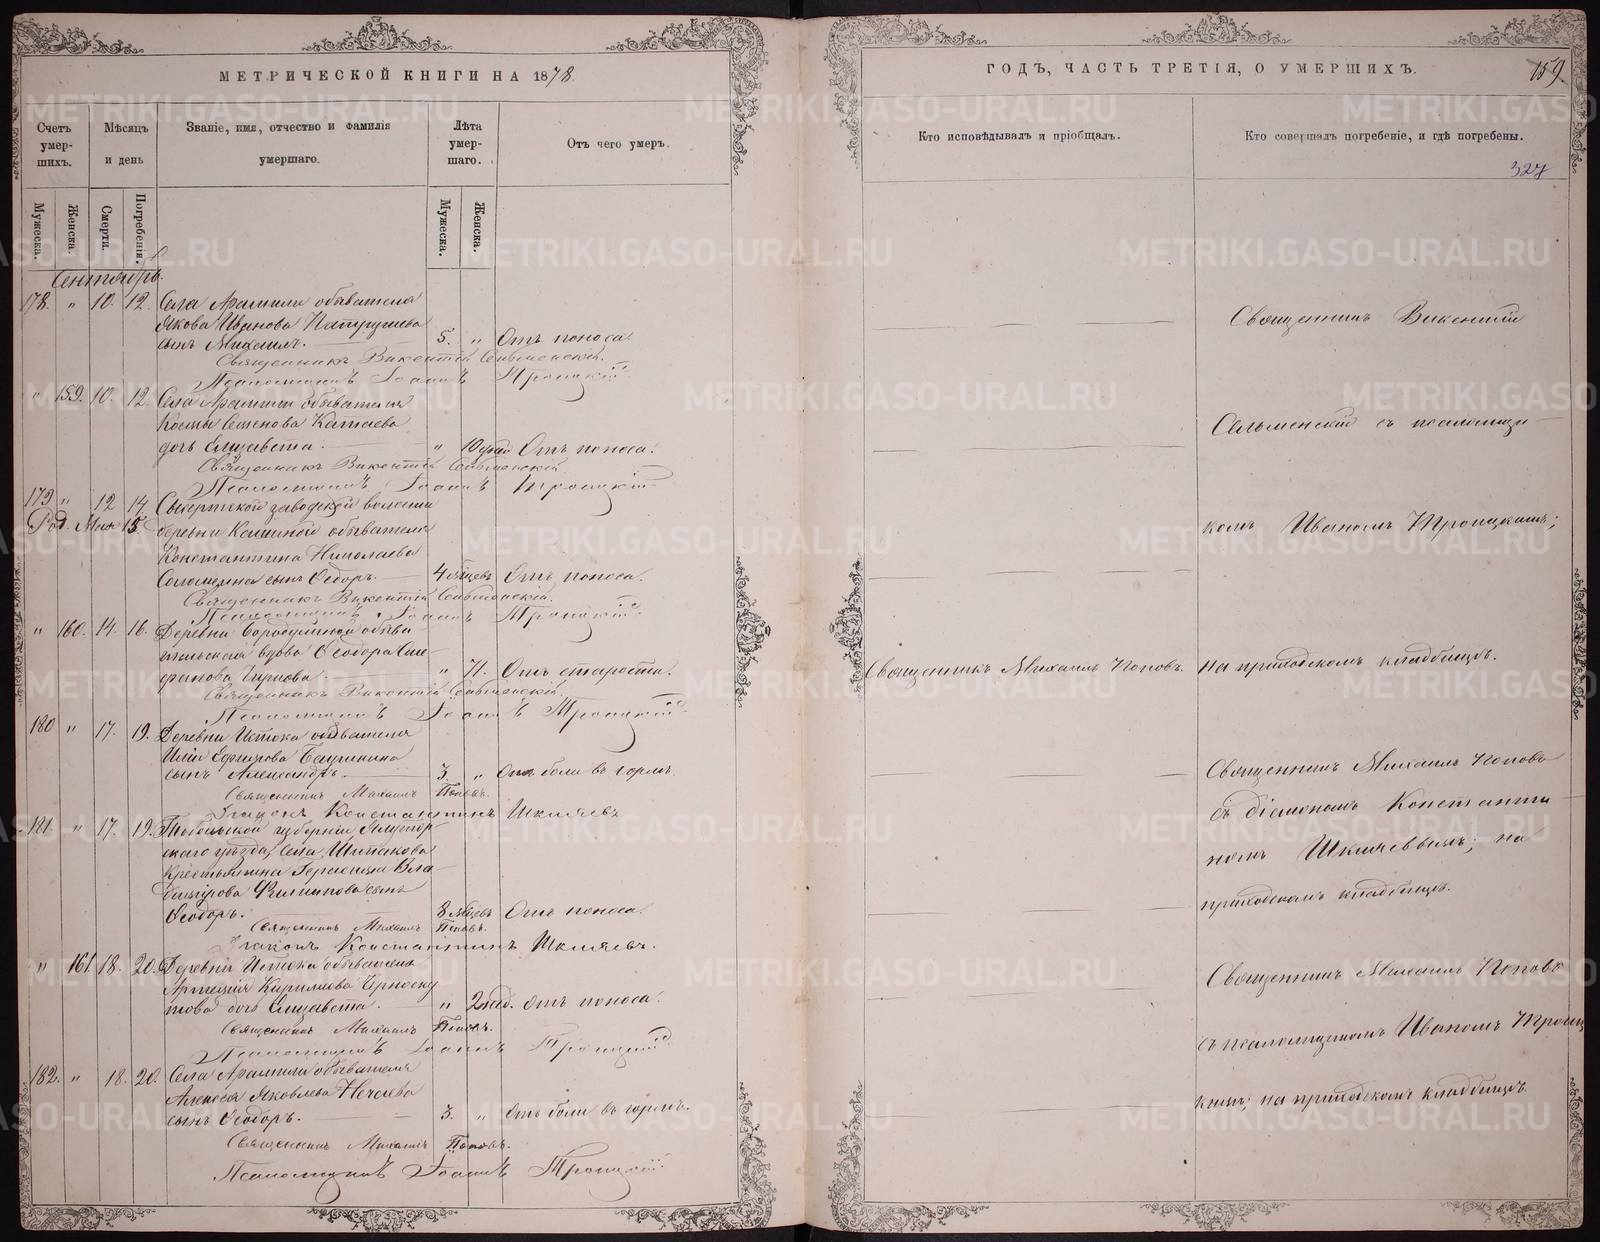 МЕТРИЧЕСКОЙ КНИГИ НА 1878
Счетъ умер-шихъ.
Мѣсяцъ и день
Званіе, имя, отчество и фамилія умершаго.
Лѣта умер-шаго.
Отъ чего умеръ.
Мужеска.
Женска.
Смерти.
Погребенія.
Мужеска.
Женска.
Сентябрь.
178. " 10. 12. Села Арамили обывателя
Якова Иванова Патрушева
сынъ Михаилъ. 5. " Отъ поноса.
Священникъ Викентій Сельменскій.
Псаломщикъ Іоаннъ Троицкій
" 159. 10. 12. Села Арамили обывателя
Космы Семенова Катаева
дочь Елизавета. " 10 дней Отъ поноса.
Священникъ Викентій Сельменскій
Псаломщикъ Іоаннъ Троицкій
179 " 12 14. Сысертской заводской волости
Род. Мая 15. деревни Кашиной обывателя
Константина Николаева
сынъ Ѳедоръ. 4 мѣсяцевъ Отъ поноса.
Священникъ Викентій Сельменскій.
Псаломщикъ Іоаннъ Троицкій
" 160. 14. 16. Деревни Бородулиной обыва-
тельская вдова Ѳеодора
" 71. Отъ старости.
Священникъ Викентій Сельменскій.
Псаломщикъ Іоаннъ Троицкій
180 " 17. 19. Деревни Истока обывателя
Иліи Ефимова
сынъ Александръ. 3. " Отъ боли въ горлѣ.
Священникъ Михаилъ Поповъ.
Діаконъ Константинъ Шкляевъ
181. " 17. 19. Тобольской губерніи Ялутор-
скаго уѣзда, села
крестьянина Герасима
Филиппова сынъ
Ѳеодоръ. 8 мѣсяцевъ Отъ поноса.
Священникъ Михаилъ Поповъ.
Діаконъ Константинъ Шкляевъ.
" 161 18. 20. Деревни Истока обывателя
Кирилова Черноску-
това дочь Елизавета. " 2 нед. отъ поноса.
Священникъ Михаилъ Поповъ.
Псаломщикъ Іоаннъ Троицкій
182. " 18. 20. Села Арамили обывателя
Алексѣя Яковлева Нечаева
сынъ Ѳеодоръ. 3. " Отъ боли въ горлѣ.
Священникъ Михаилъ Поповъ.
Псаломщикъ Іоаннъ Троицкій
ГОДЪ, ЧАСТЬ ТРЕТІЯ, О УМЕРШИХЪ.
159.
Кто исповѣдывалъ и пріобщалъ.
Кто совершалъ погребеніе, и гдѣ погребены.
327
Священникъ Викентій
Сельменскій съ псаломщи-
комъ Иваномъ Троицкимъ;
Священникъ Михаилъ Поповъ. на приходскомъ кладбищѣ.
Священникъ Михаилъ Поповъ
съ діакономъ Константи-
номъ Шкляевымъ; на
приходскомъ кладбищѣ.
Священникъ Михаилъ Поповъ
съ псаломщикомъ Иваномъ Троиц-
кимъ; на приходскомъ кладбищѣ
METRIKI.GASO-URAL.RU